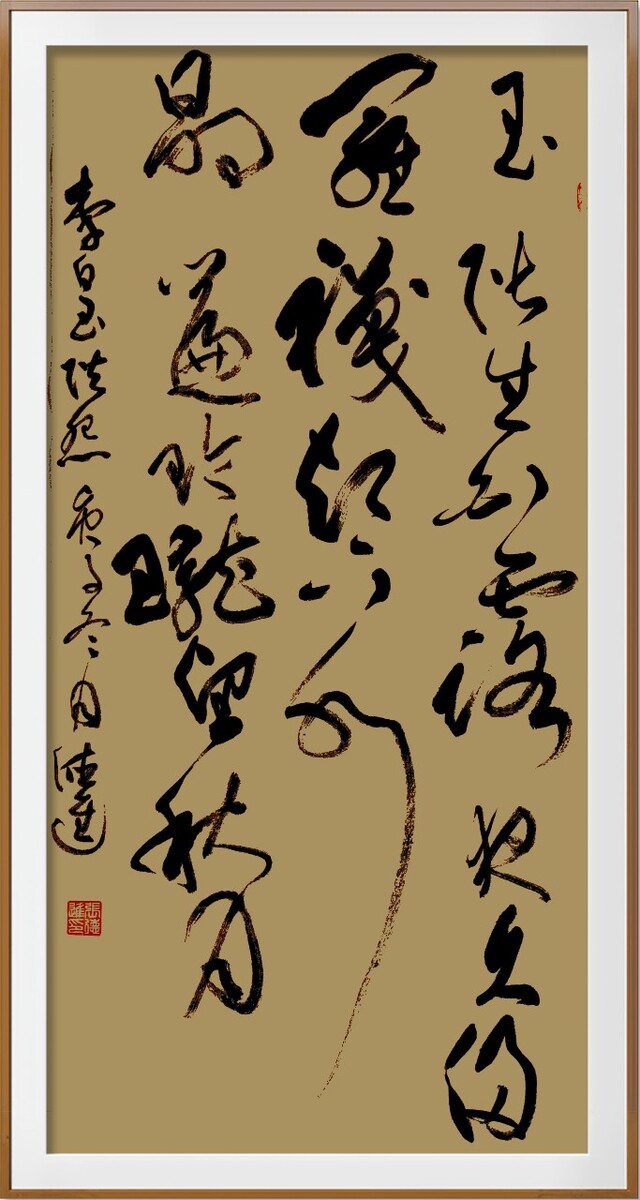 玉階生白露夜久侵
羅襪却下水
晶簾玲瓏望秋月
李白玉階怨 庚子冬月 德進
張德進印